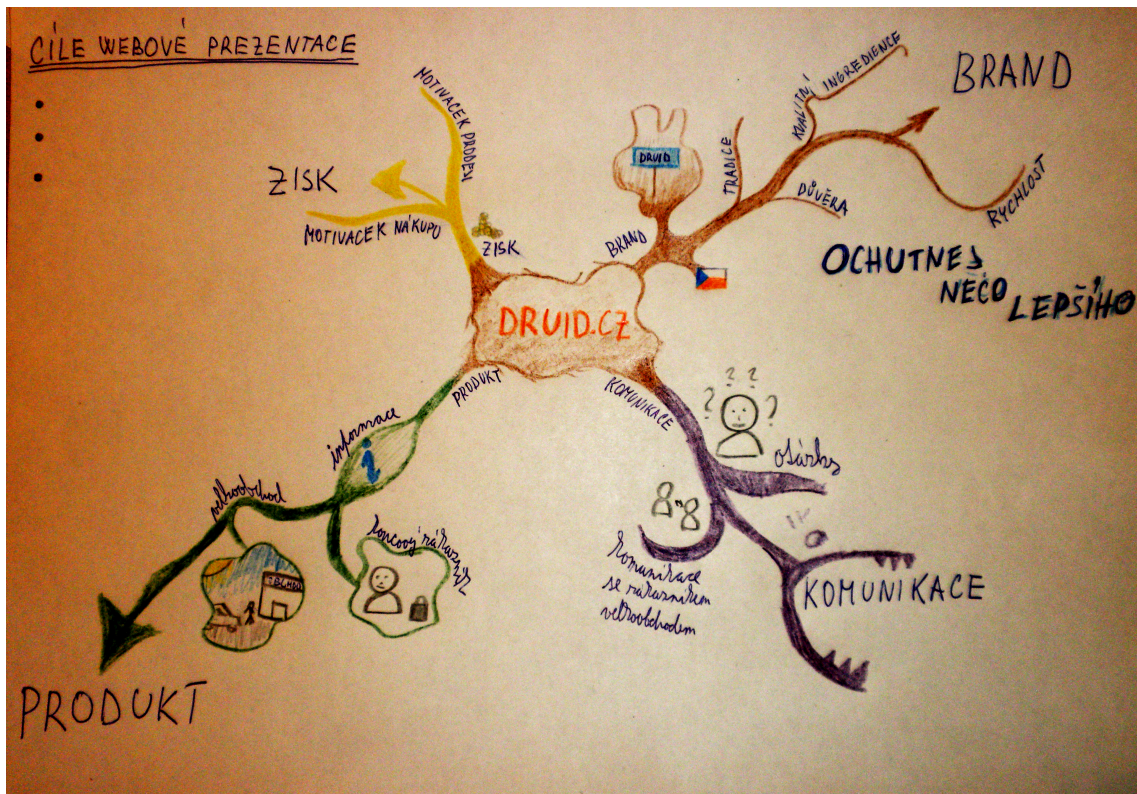 CÍLE WEBOVÉ PREZENTACE
MOTIVACEK PRODEJ
ZISK
MOTIVACEK NÁKUPU
ZISK
BRAND
KVALITNÍ INGREDIENCE
TRADICE
DŮVĚRA
RYCHLOST
DRUID
BRAND
OCHUTNEJ
NĚCO
LEPŠÍHO
DRUID.CZ
PRODUKT
informace
i
velkoobchod
koncový zákazník
PRODUKT
KOMUNIKACE
? ? ? ?
otázka
komunikace
se zákazníkem
velkoobchodem
KOMUNIKACE